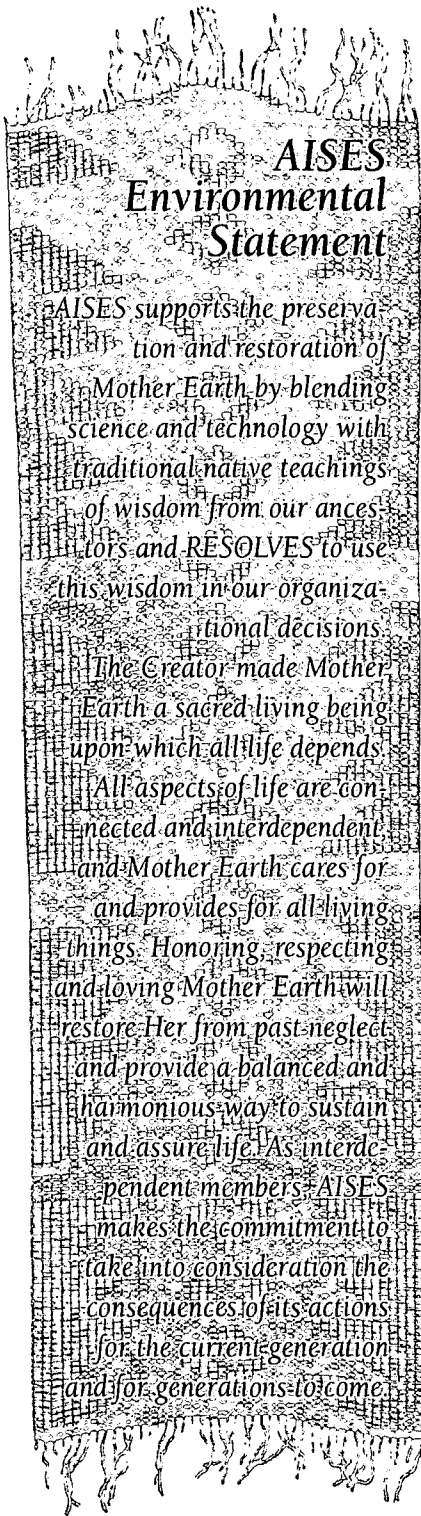 AISES
Environmental
Statement
AISES supports the preserva-
tion and restoration of
Mother Earth by blending
science and technology with
traditional native teachings
of wisdom from our ances-
tors and RESOLVES to use
this wisdom in our organiza-
tional decisions.
The Creator made Mother
Earth a sacred living being
upon which all life depends.
All aspects of life are con-
nected and interdependent,
and Mother Earth cares for
and provides for all living
things. Honoring, respecting
and loving Mother Earth will
restore Her from past neglect
and provide a balanced and
harmonious way to sustain
and assure life. As interde-
pendent members, AISES
makes the commitment to
take into consideration the
consequences of its actions
for the current generation
and for generations to come.